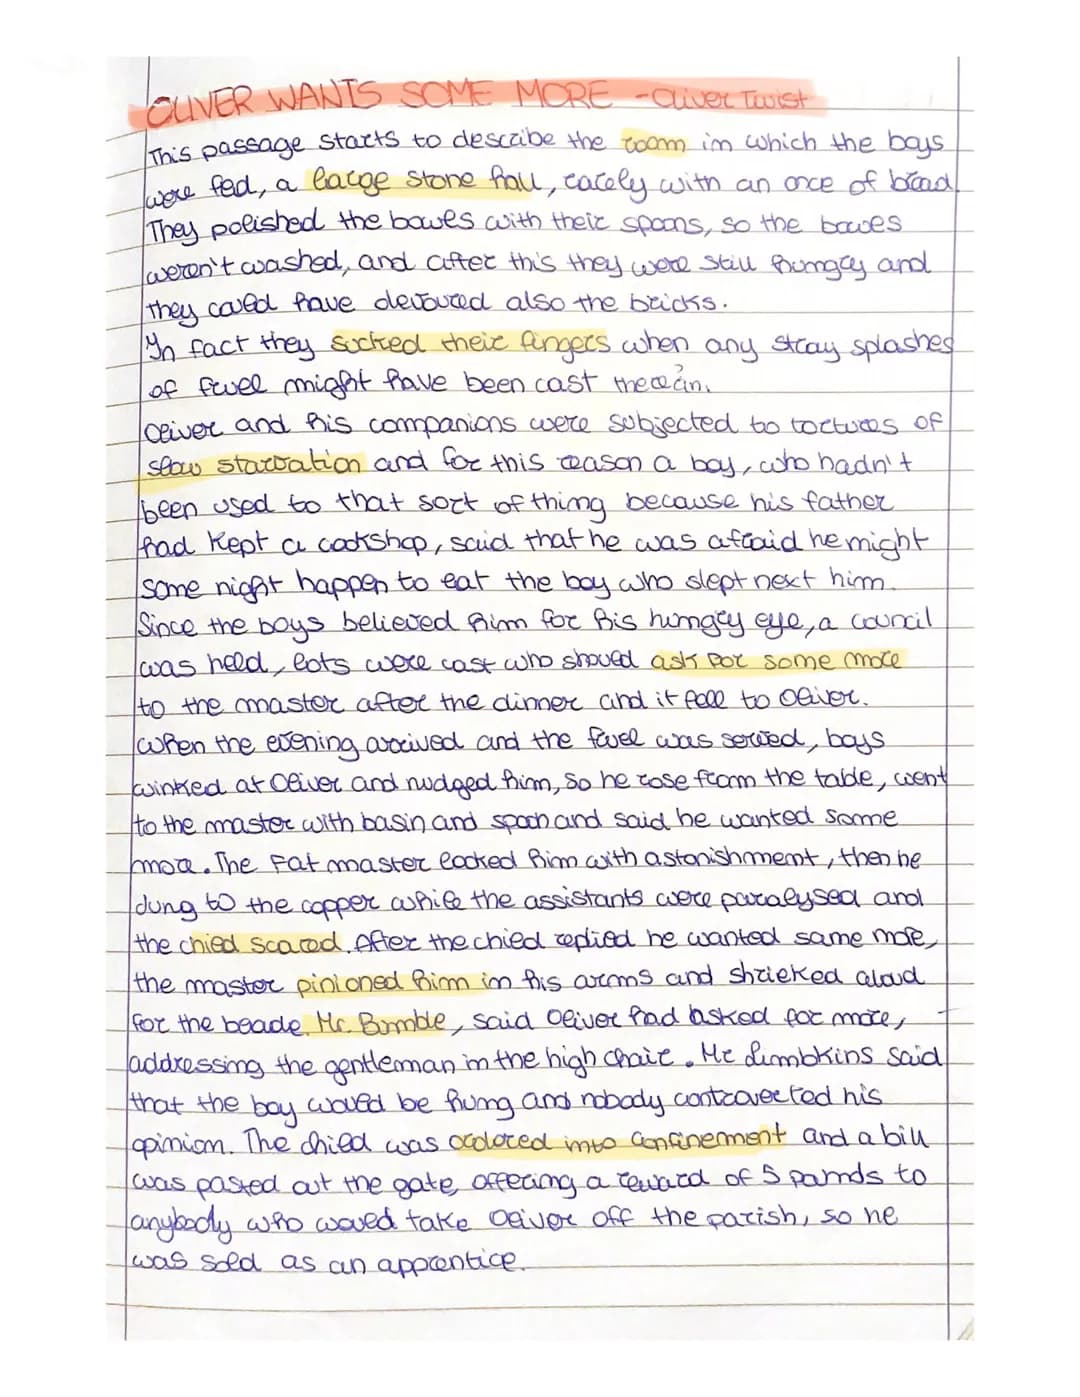 OLIVER WANTS SOME MORE - Oliver Twist
This passage starts to describe the room in which the boys
were fed, a large stone hall, rarely with an once of bread.
They polished the bowls with their spoons, so the bowls
weren't washed, and after this they were still hungry and
they could have devoured also the bricks.
In fact they sucked their fingers when any stray splashes
of fuel might have been cast therein.
Oliver and his companions were subjected to tortures of
slow starvation and for this reason a boy, who hadn't
been used to that sort of thing because his father
had kept a cookshop, said that he was afraid he might
some night happen to eat the boy who slept next him.
Since the boys believed him for his hungry eye, a council
was held, lots were cast who should ask for some more
to the master after the dinner and it fell to Oliver.
When the evening arrived and the fuel was served, boys
winked at Oliver and nudged him, so he rose from the table, went
to the master with basin and spoon and said he wanted some
more. The fat master looked him with astonishment, then he
clung to the copper while the assistants were paralysed and
the child scared. After the child replied he wanted some more,
the master pinioned him in his arms and shrieked aloud
for the beadle. Mr. Bumble, said Oliver had asked for more,
addressing the gentleman in the high chair. Mr Limbkins said
that the boy would be hung and nobody controverted his
opinion. The child was ordered into confinement and a bill
was pasted out the gate, offering a reward of 5 pounds to
anybody who would take Oliver off the parish, so he
was sold as an apprentice.